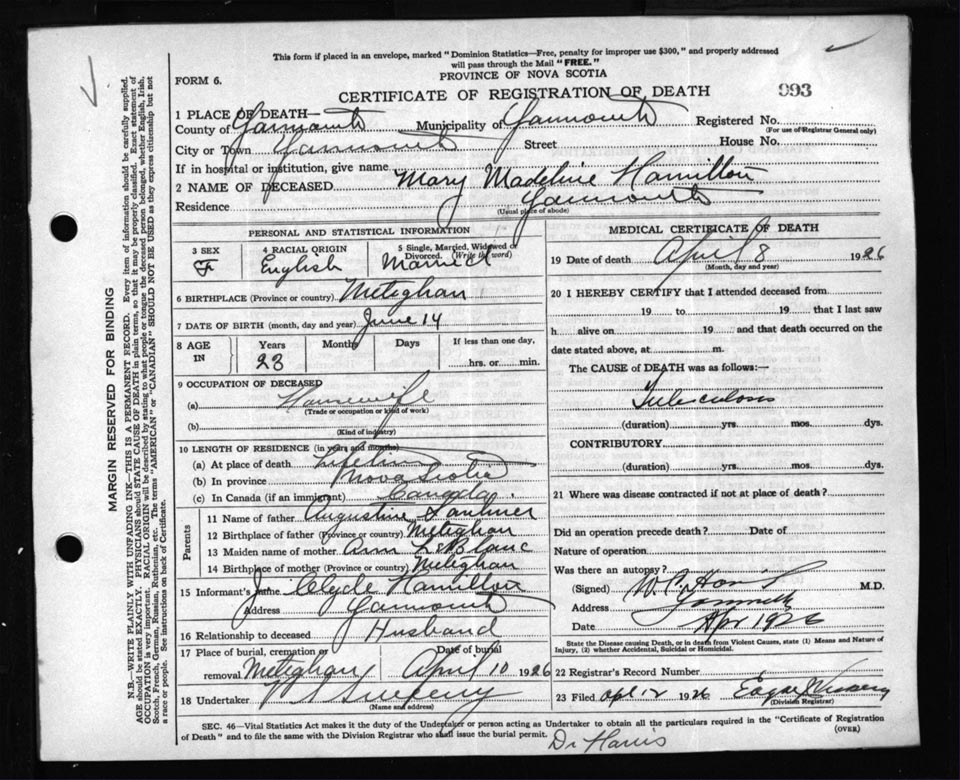 This form if placed in an envelope, marked "Dominion Statistics—Free, penalty for improper use $300," and properly addressed
will pass through the Mail "FREE."
FORM 6.
PROVINCE OF NOVA SCOTIA
CERTIFICATE OF REGISTRATION OF DEATH
993
1 PLACE OF DEATH—
County of Yarmouth Municipality of Yarmouth Registered No.
(For use of Registrar General only)
City or Town Yarmouth Street House No.
If in hospital or institution, give name
2 NAME OF DECEASED Mary Madeline Hamilton
Residence Yarmouth
(Usual place of abode)
PERSONAL AND STATISTICAL INFORMATION
3 SEX F
4 RACIAL ORIGIN English
5 Single, Married, Widowed or Divorced. (Write the word) Married
6 BIRTHPLACE (Province or country) Meteghan
7 DATE OF BIRTH (month, day and year) June 14
8 AGE IN Years 23 Months Days If less than one day, hrs. or min.
9 OCCUPATION OF DECEASED
(a) Housewife
(Trade or occupation or kind of work)
(b)
(Kind of industry)
10 LENGTH OF RESIDENCE (in years and months)
(a) At place of death Lifetime
(b) In province Nova Scotia
(c) In Canada (if an immigrant) Canada
Parents
11 Name of father Augustine Saulnier
12 Birthplace of father (Province or country) Meteghan
13 Maiden name of mother Ann LeBlanc
14 Birthplace of mother (Province or country) Meteghan
15 Informant's Name J. Clyde Hamilton
Address Yarmouth
16 Relationship to deceased Husband
17 Place of burial, cremation or removal Meteghan Date of burial April 10 1926
18 Undertaker V S Sweeny
(Name and address)
MEDICAL CERTIFICATE OF DEATH
19 Date of death April 8 1926
(Month, day and year)
20 I HEREBY CERTIFY that I attended deceased from
19 to 19 that I last saw
h alive on 19 and that death occurred on
date stated above, at m.
The CAUSE of DEATH was as follows:—
Tuberculosis
(duration) yrs. mos. dys.
CONTRIBUTORY
(duration) yrs. mos. dys.
21 Where was disease contracted if not at place of death?
Did an operation precede death? Date of
Nature of operation
Was there an autopsy?
(Signed) W. C. Harris M.D.
Address Yarmouth
Date Apr 1926
State the Disease causing Death, or in death from Violent Causes, state (1) Means and Nature of
Injury, (2) whether Accidental, Suicidal or Homicidal.
22 Registrar's Record Number
23 Filed Apl 12 1926 Edgar
(Division Registrar)
SEC. 46—Vital Statistics Act makes it the duty of the Undertaker or person acting as Undertaker to obtain all the particulars required in the "Certificate of Registration
of Death" and to file the same with the Division Registrar who shall issue the burial permit.
(OVER)
Dr Harris
MARGIN RESERVED FOR BINDING
N.B.—WRITE PLAINLY WITH UNFADING INK—THIS IS A PERMANENT RECORD. Every item of information should be carefully supplied.
AGE should be stated EXACTLY. PHYSICIANS should STATE CAUSE OF DEATH in plain terms, so that it may be properly classified. Exact statement of
OCCUPATION is very important. RACIAL ORIGIN will be described by stating to what people or tongue the deceased person belonged, whether English, Irish,
Scotch, French, German, Russian, Ruthenian, etc. The terms "AMERICAN" or "CANADIAN" SHOULD NOT BE USED as they express citizenship but not
a race or people. See instructions on back of Certificate.